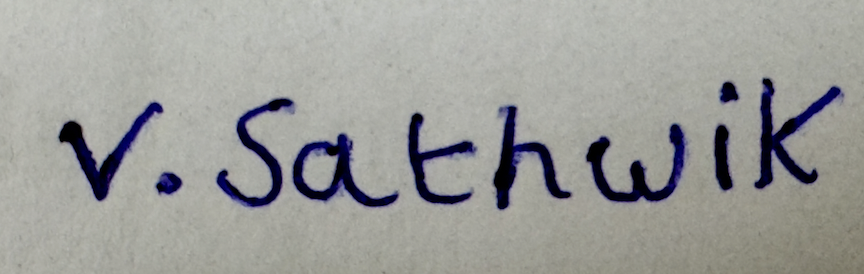 V. Sathwik